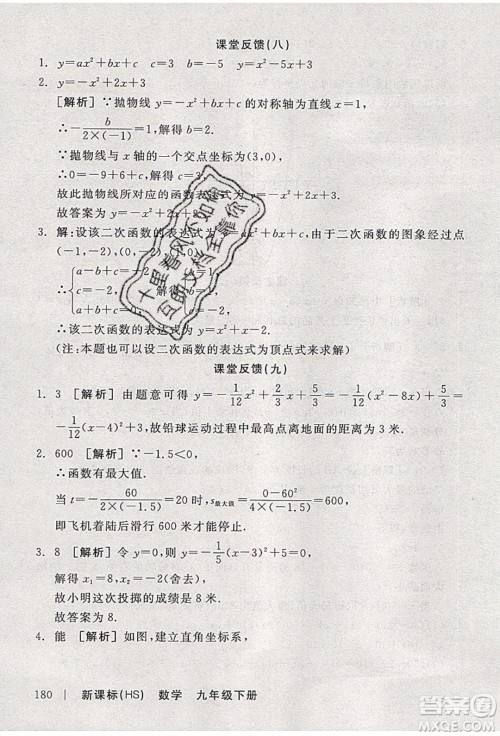 课堂反馈(八)
1. y=ax²+bx+c b=-5 y=x²-5x+3
2. y=-x²+2x+3
[解析] ∵抛物线 y=-x²+bx+c 的对称轴为直线 x=1,
∴-b/(2×(-1))=1,解得 b=2.
∵抛物线与 x 轴的一个交点坐标为(3,0),
∴0=-9+6+c,解得 c=3.
故此抛物线所对应的函数表达式为 y=-x²+2x+3.
故答案为 y=-x²+2x+3
3. 解:设该二次函数的表达式为 由于二次函数的图象经过点
(1,-2),(-1,
∴ { a+b+c= 解得 { a=
∴该二次函数的表达式为
(注:本题也可以设二次函数的表达式为顶点式来求解)
课堂反馈(九)
1. 3 [解析] 由题意可得 y=-1/12x²+2/3x+5/3=-1/12(x²-8x)+5/3=
-1/12(x-4)²+3,故铅球运动过程中最高点离地面的距离为 3 米.
2. 600 [解析] ∵-1.5<0,
∴函数有最大值.
当 t=-60/(2×(-1.5))=20 时,s最大值=(0-60²)/(4×(-1.5))=600,
即飞机着陆后滑行 600 米才能停止.
3. 8 [解析] 令 y=0,则 y=-1/5(x-3)²+5=0,
解得 x₁=8,x₂=-2(舍去),
故小明这次投掷的成绩是 8 米.
故答案为 8 米
4. 能 [解析] 如图,建立直角坐标系,
180 | 新课标(HS) 数学 九年级下册
十里春风不如你
互助文档全靠你